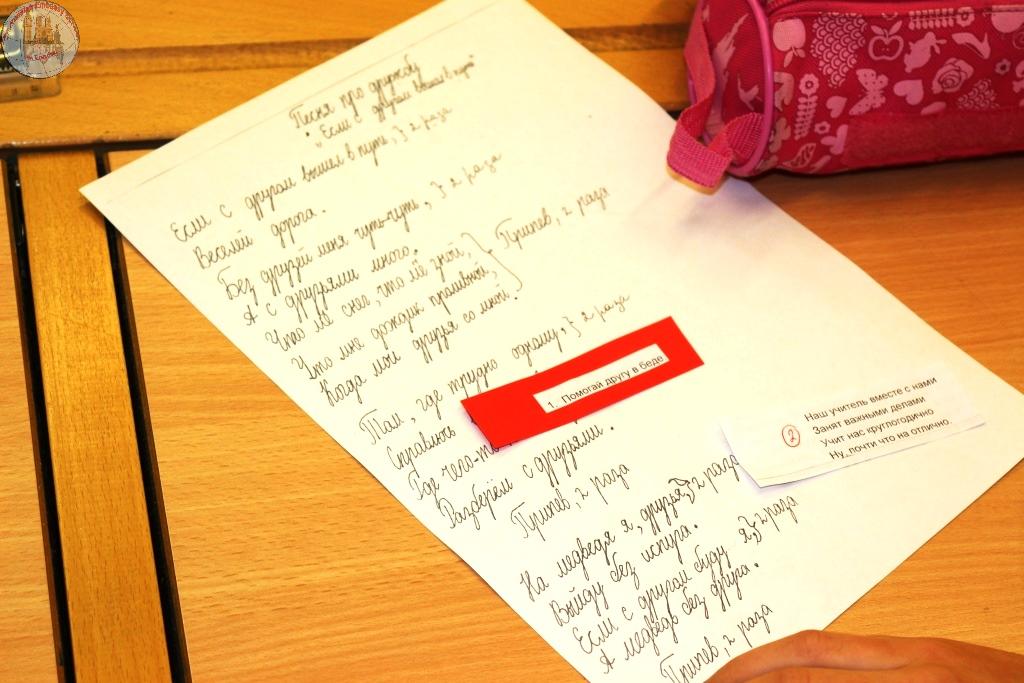 Песня про дружбу
"Если с другом вышел в путь"
Если с другом вышел в путь, } 2 раза
Веселей дорога.
Без друзей меня чуть-чуть, } 2 раза
А с друзьями много.
Что мне снег, что мне зной,
Что мне дождик проливной,
Когда мои друзья со мной. } Припев, 2 раза
Там, где трудно одному, } 2 раза
Справлюсь
1. Помогай другу в беде
Где чего-то
Разберём с друзьями.
Припев, 2 раза
На медведя я, друзья, } 2 раза
Выйду без испуга.
Если с другом буду я, } 2 раза
А медведь без друга.
Припев, 2 раза
2
Наш учитель вместе с нами
Занят важными делами
Учит нас круглогодично
Ну, почти что на отлично.